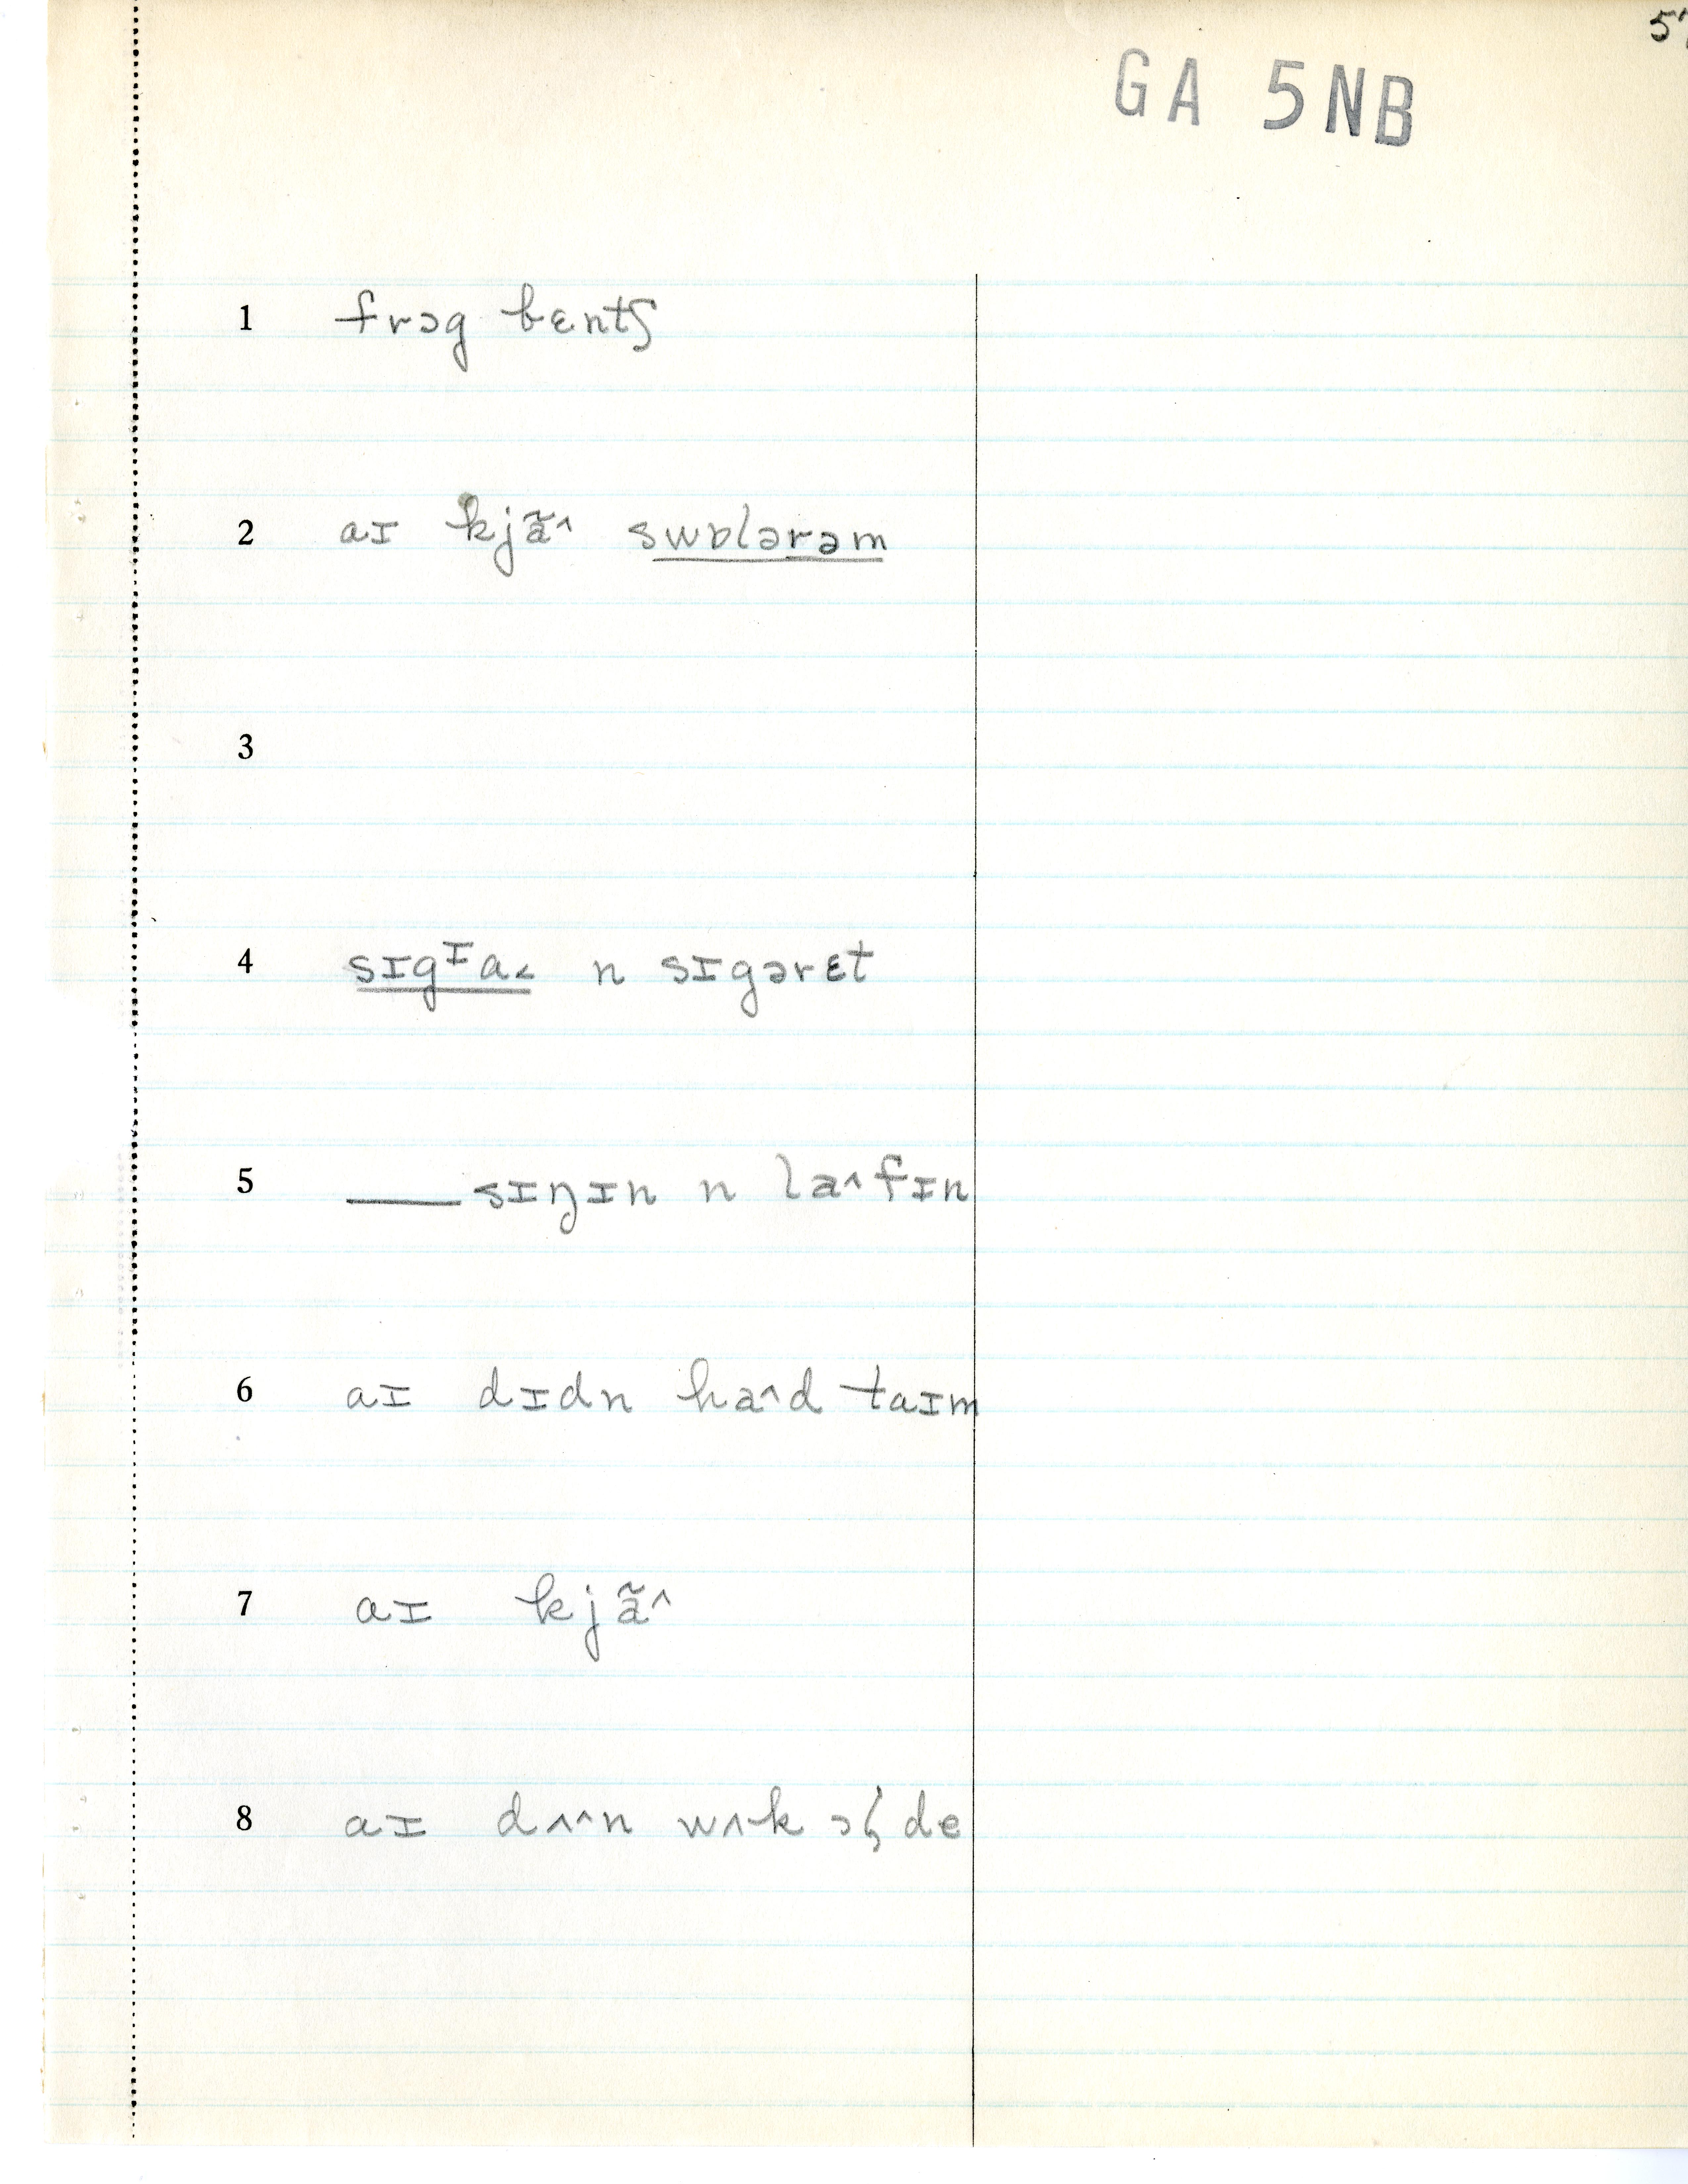 5
GA 5NB
1 frɔg bɛntʃ
2 aɪ kjã^ swɒləɾəm
3
4 sɪgᴵa˂ n sɪgərɛt
5 ___ sɪŋɪn n la^fɪn
6 aɪ dɪdn ha^d taɪm
7 aɪ kjã^
8 aɪ dʌ^n wʌk de